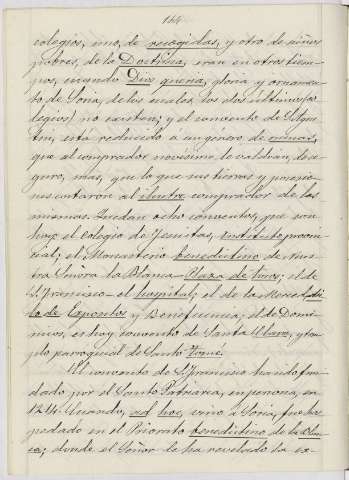 164
colegios, uno, de recogidas, y otro de niños
pobres, de la Doctrina, eran en otros tiem-
pos, cuando Dios quería, gloria y ornamen-
to de Soria, de los cuales, los dos últimos (co-
legios) no existen; y el convento de S. Agus-
tín, está reducido a un género de
que al comprador novísimo le valdrán, de se-
guro, mas, que lo que sus tierras y posesio-
nes costaron al ilustre comprador de las
mismas. Quedan ocho conventos, que son
hoy: el Colegio de Jesuitas, Instituto provin-
cial; el Monasterio benedictino de Nues-
tra Señora la Blanca = Plaza de Toros; el de
S. Francisco = el hospital; el de la Merced, Asi-
lo de Expositos y Beneficencia; el de Domi-
nicos, es hoy convento de Santa Clara, y tem-
plo parroquial de Santo Tomé.
El convento de S. Francisco fue fun-
dado por el Santo Patriarca, en persona, en
1214. Cuando, ad hoc, vino a Soria, fue hos-
pedado en el Priorato benedictino de la Blan-
ca; donde el Señor le ha revelado la ex-